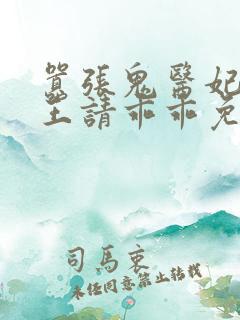 囂張鬼醫妃
王請乖乖免
司馬衷
未經同意禁止轉載